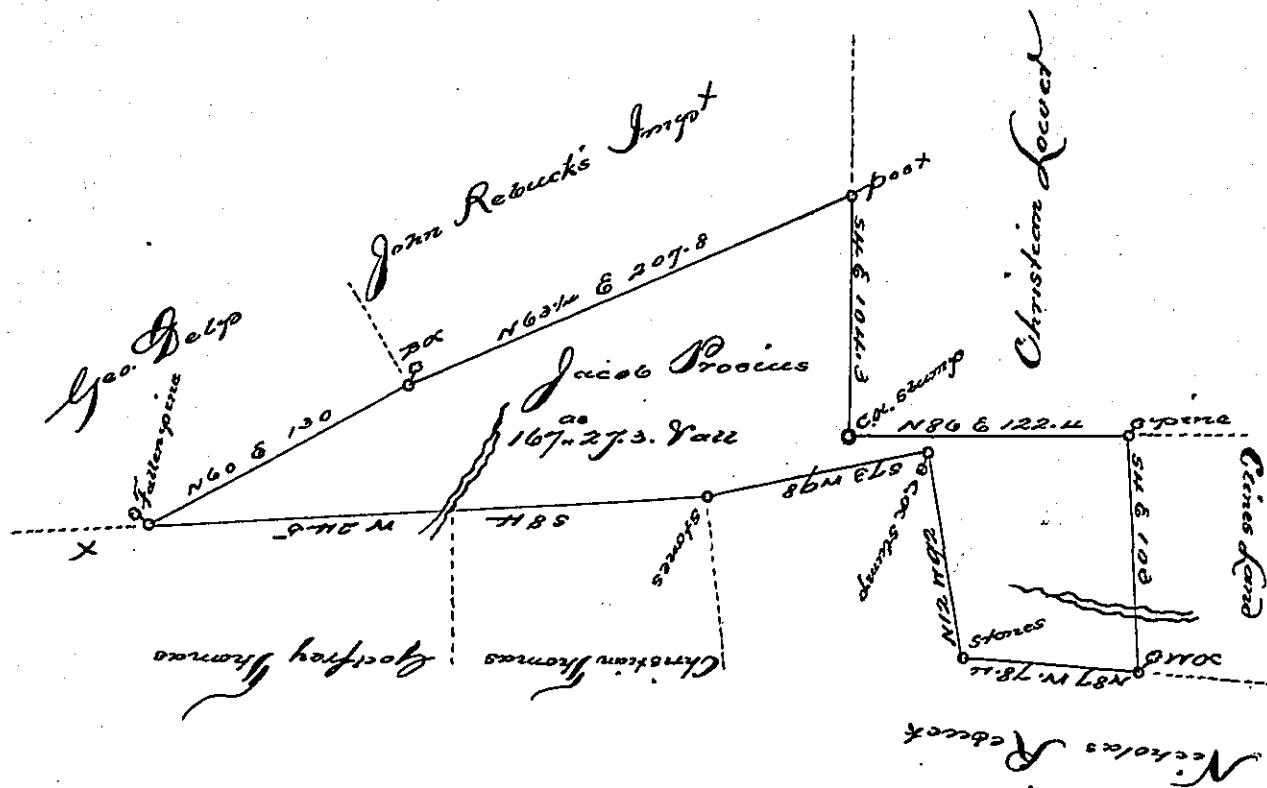 John Rebuck's Impt
Christian
Geo. Delp
Fallen pine
N 60 E 130
N 63 1/4 E 207.8
post
S 4 E 104.3
Jacob
167 as 27.3. Vall
C.O. stump
N 86 E 122.4
pine
S 4 E 103
Lines Land
X
S 84 W 245
stones
S 73 W 98
C.O. stump
N 12 W 92
stones
N 87 W. 78.4
Godfrey Thomas
Christian Thomas
Nicholas Rebuck